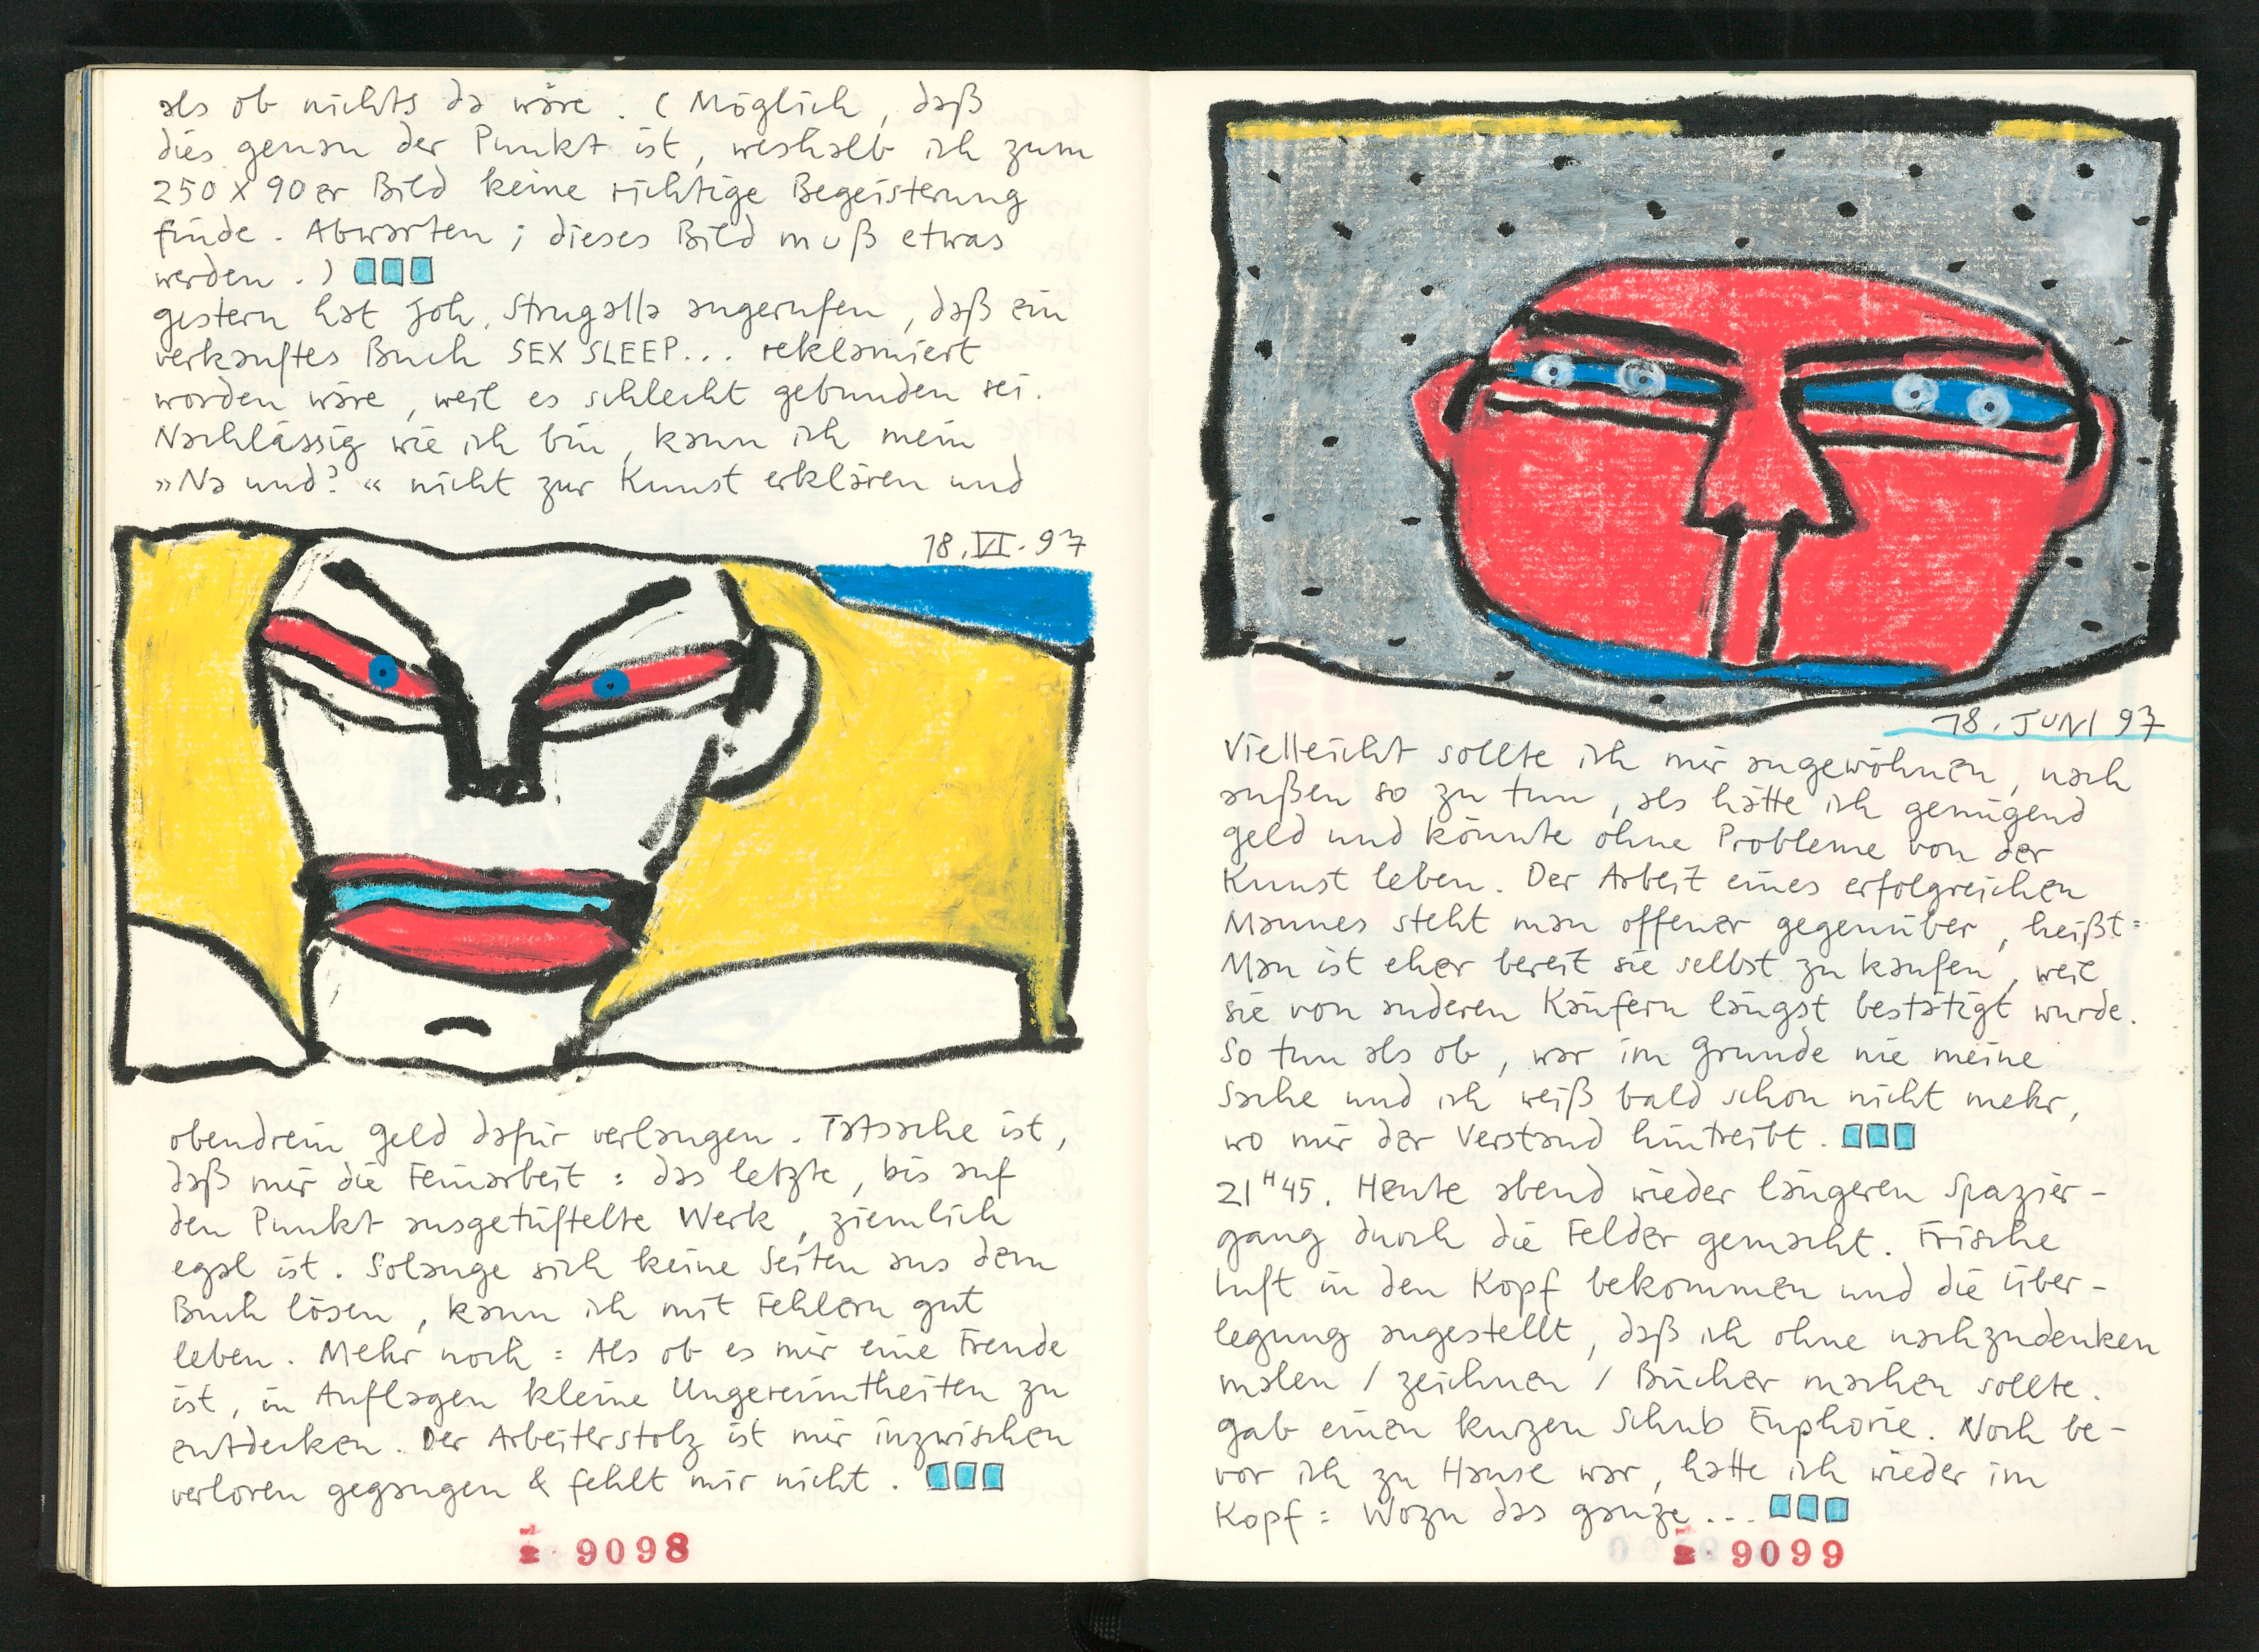 als ob nichts da wäre. (Möglich, daß
dies genau der Punkt ist, weshalb ich zum
250 x 90er Bild keine richtige Begeisterung
finde. Abwarten; dieses Bild muß etwas
werden.)
gestern hat Joh. Strugalla angerufen, daß ein
verkauftes Buch SEX SLEEP... reklamiert
worden wäre, weil es schlecht gebunden sei.
Nachlässig wie ich bin, kann ich mein
»Na und?« nicht zur Kunst erklären und
18.VI.97
obendrein Geld dafür verlangen. Tatsache ist,
daß mir die Feinarbeit: das letzte, bis auf
den Punkt ausgetüftelte Werk, ziemlich
egal ist. Solange sich keine Seiten aus dem
Buch lösen, kann ich mit Fehlern gut
leben. Mehr noch: Als ob es mir eine Freude
ist, in Auflagen kleine Ungereimtheiten zu
entdecken. Der Arbeiterstolz ist mir inzwischen
verloren gegangen & fehlt mir nicht.
9098
18. JUNI 97
Vielleicht sollte ich mir angewöhnen, nach
außen so zu tun, als hätte ich genügend
Geld und könnte ohne Probleme von der
Kunst leben. Der Arbeit eines erfolgreichen
Mannes steht man offener gegenüber, heißt:
Man ist eher bereit sie selbst zu kaufen, weil
sie von anderen Käufern längst bestätigt wurde.
So tun als ob, war im Grunde nie meine
Sache und ich weiß bald schon nicht mehr,
wo mir der Verstand hintreibt.
21H45. Heute abend wieder längeren Spazier-
gang durch die Felder gemacht. Frische
Luft in den Kopf bekommen und die Über-
legung angestellt, daß ich ohne nachzudenken
malen / zeichnen / Bücher machen sollte.
Gab einen kurzen Schub Euphorie. Noch be-
vor ich zu Hause war, hatte ich wieder im
Kopf: Wozu das ganze...
9099